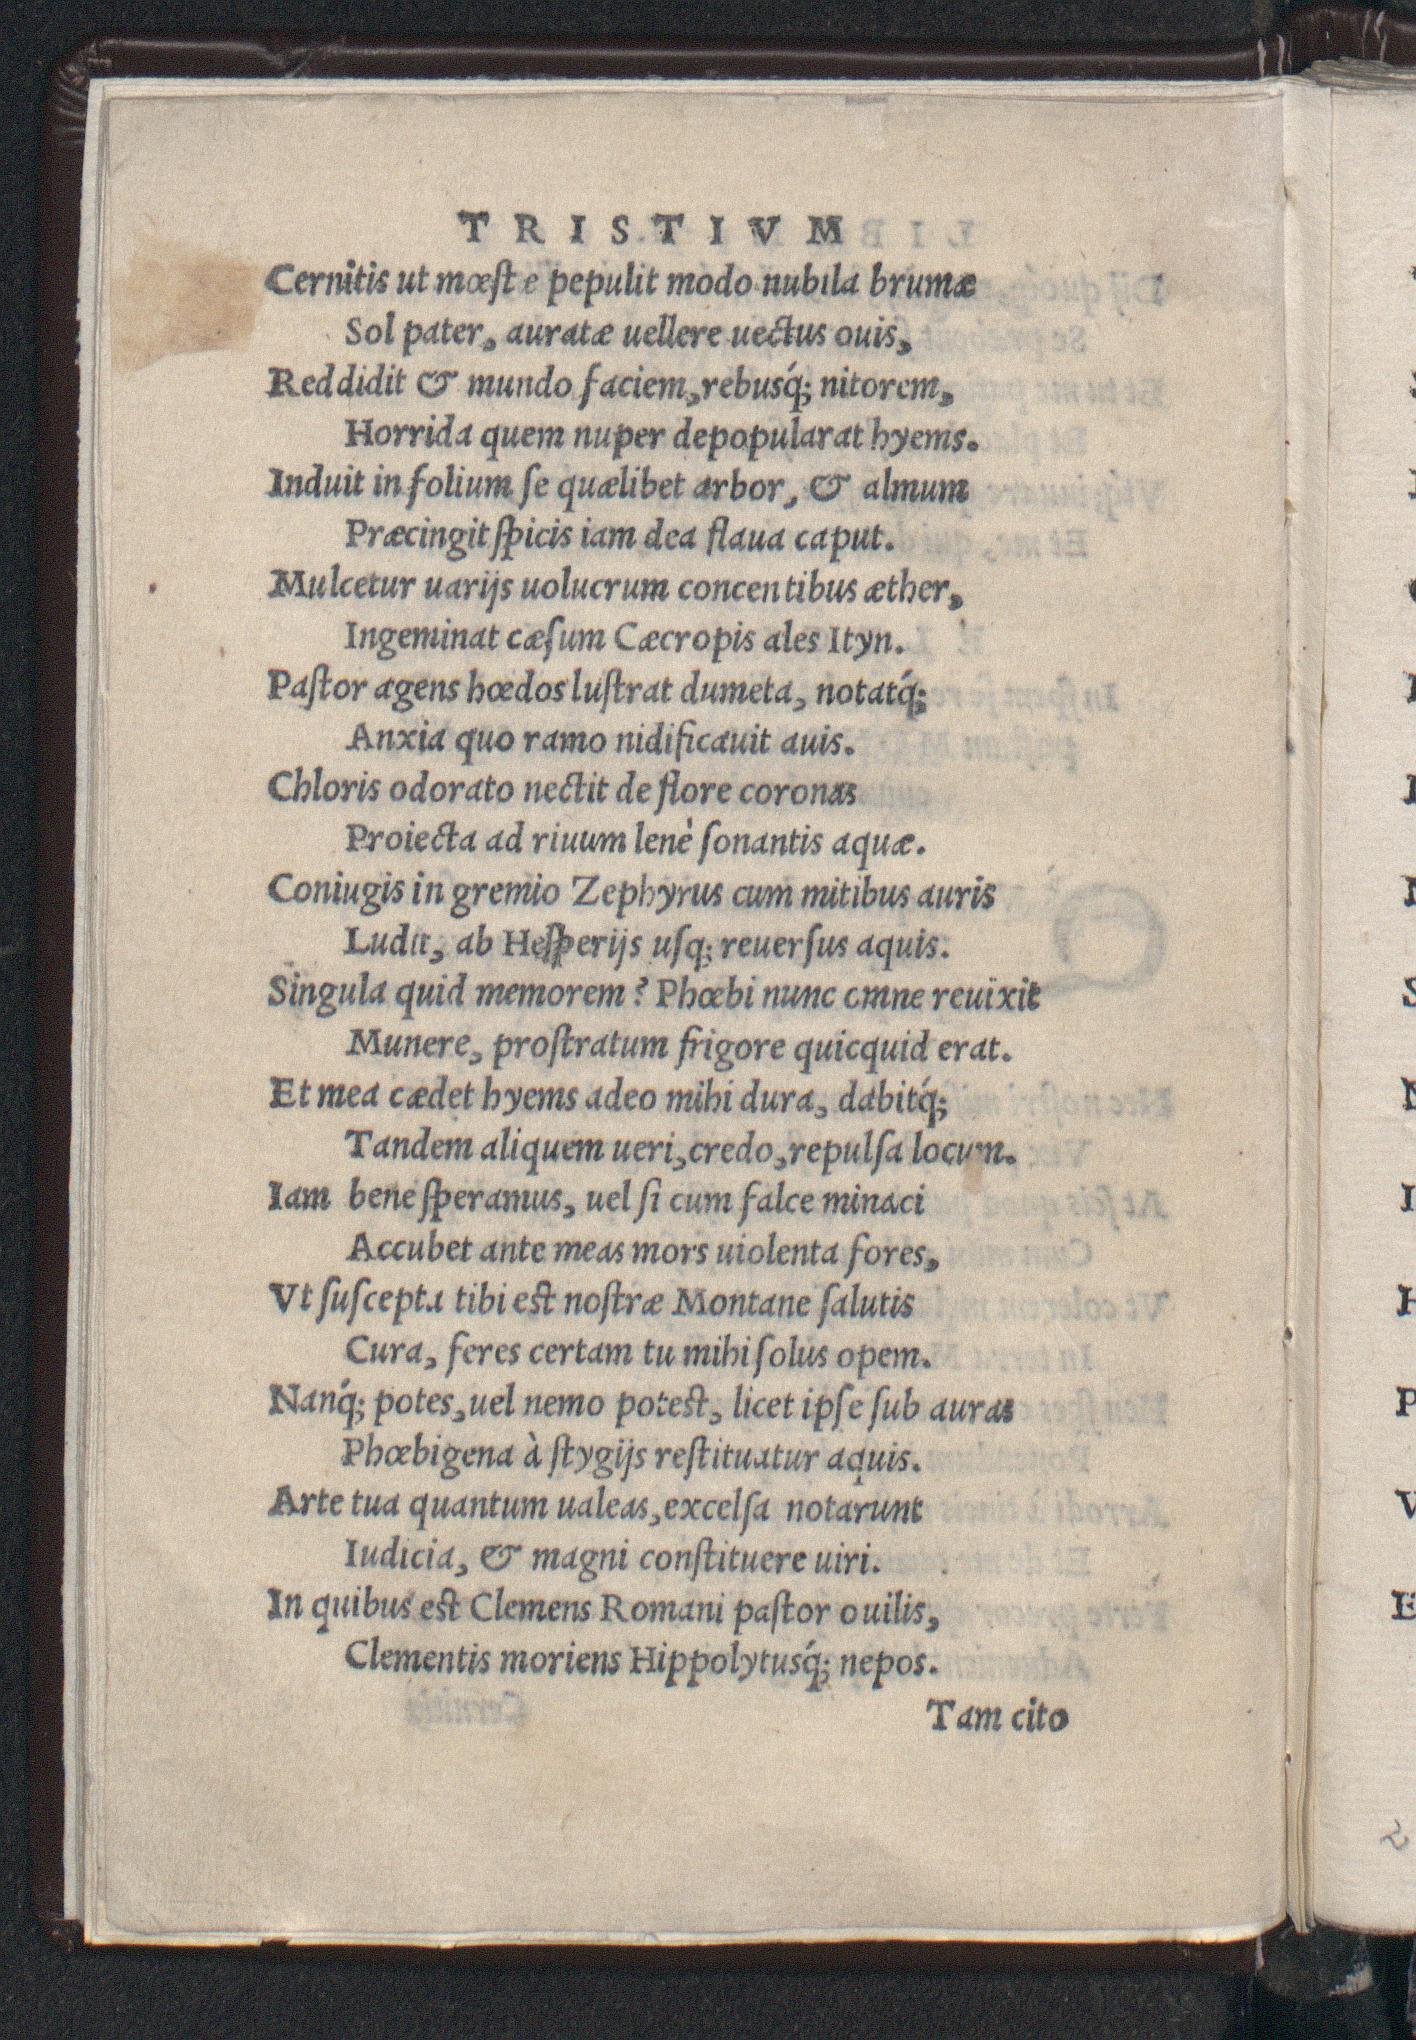 TRISTIVM
Cernitis ut mœſt e pepulit modo nubila brumæ
Sol pater, auratæ uellere uectus ouis,
Reddidit & mundo faciem, rebusq́; nitorem,
Horrida quem nuper depopularat hyems.
Induit in folium ſe quælibet arbor, & almum
Præcingit ſpicis iam dea flaua caput.
Mulcetur uarijs uolucrum concentibus æther,
Ingeminat cæſum Cæcropis ales Ityn.
Paſtor agens hœdos luſtrat dumeta, notatq́;
Anxia quo ramo nidificauit auis.
Chloris odorato nectit de flore coronas
Proiecta ad riuum lenè ſonantis aquæ.
Coniugis in gremio Zephyrus cum mitibus auris
Ludit, ab Heſperijs uſq; reuerſus aquis.
Singula quid memorem? Phœbi nunc omne reuixit
Munere, proſtratum frigore quicquid erat.
Et mea cædet hyems adeo mihi dura, dabitq́;
Tandem aliquem ueri, credo, repulſa locum.
Iam bene ſperamus, uel ſi cum falce minaci
Accubet ante meas mors uiolenta fores,
Vt ſuſcepta tibi eſt noſtræ Montane ſalutis
Cura, feres certam tu mihi ſolus opem.
Nanq́; potes, uel nemo poteſt, licet ipſe ſub auras
Phœbigena à ſtygijs reſtituatur aquis.
Arte tua quantum ualeas, excelſa notarunt
Iudicia, & magni conſtituere uiri.
In quibus eſt Clemens Romani paſtor ouilis,
Clementis moriens Hippolytusq́; nepos.
Tam cito